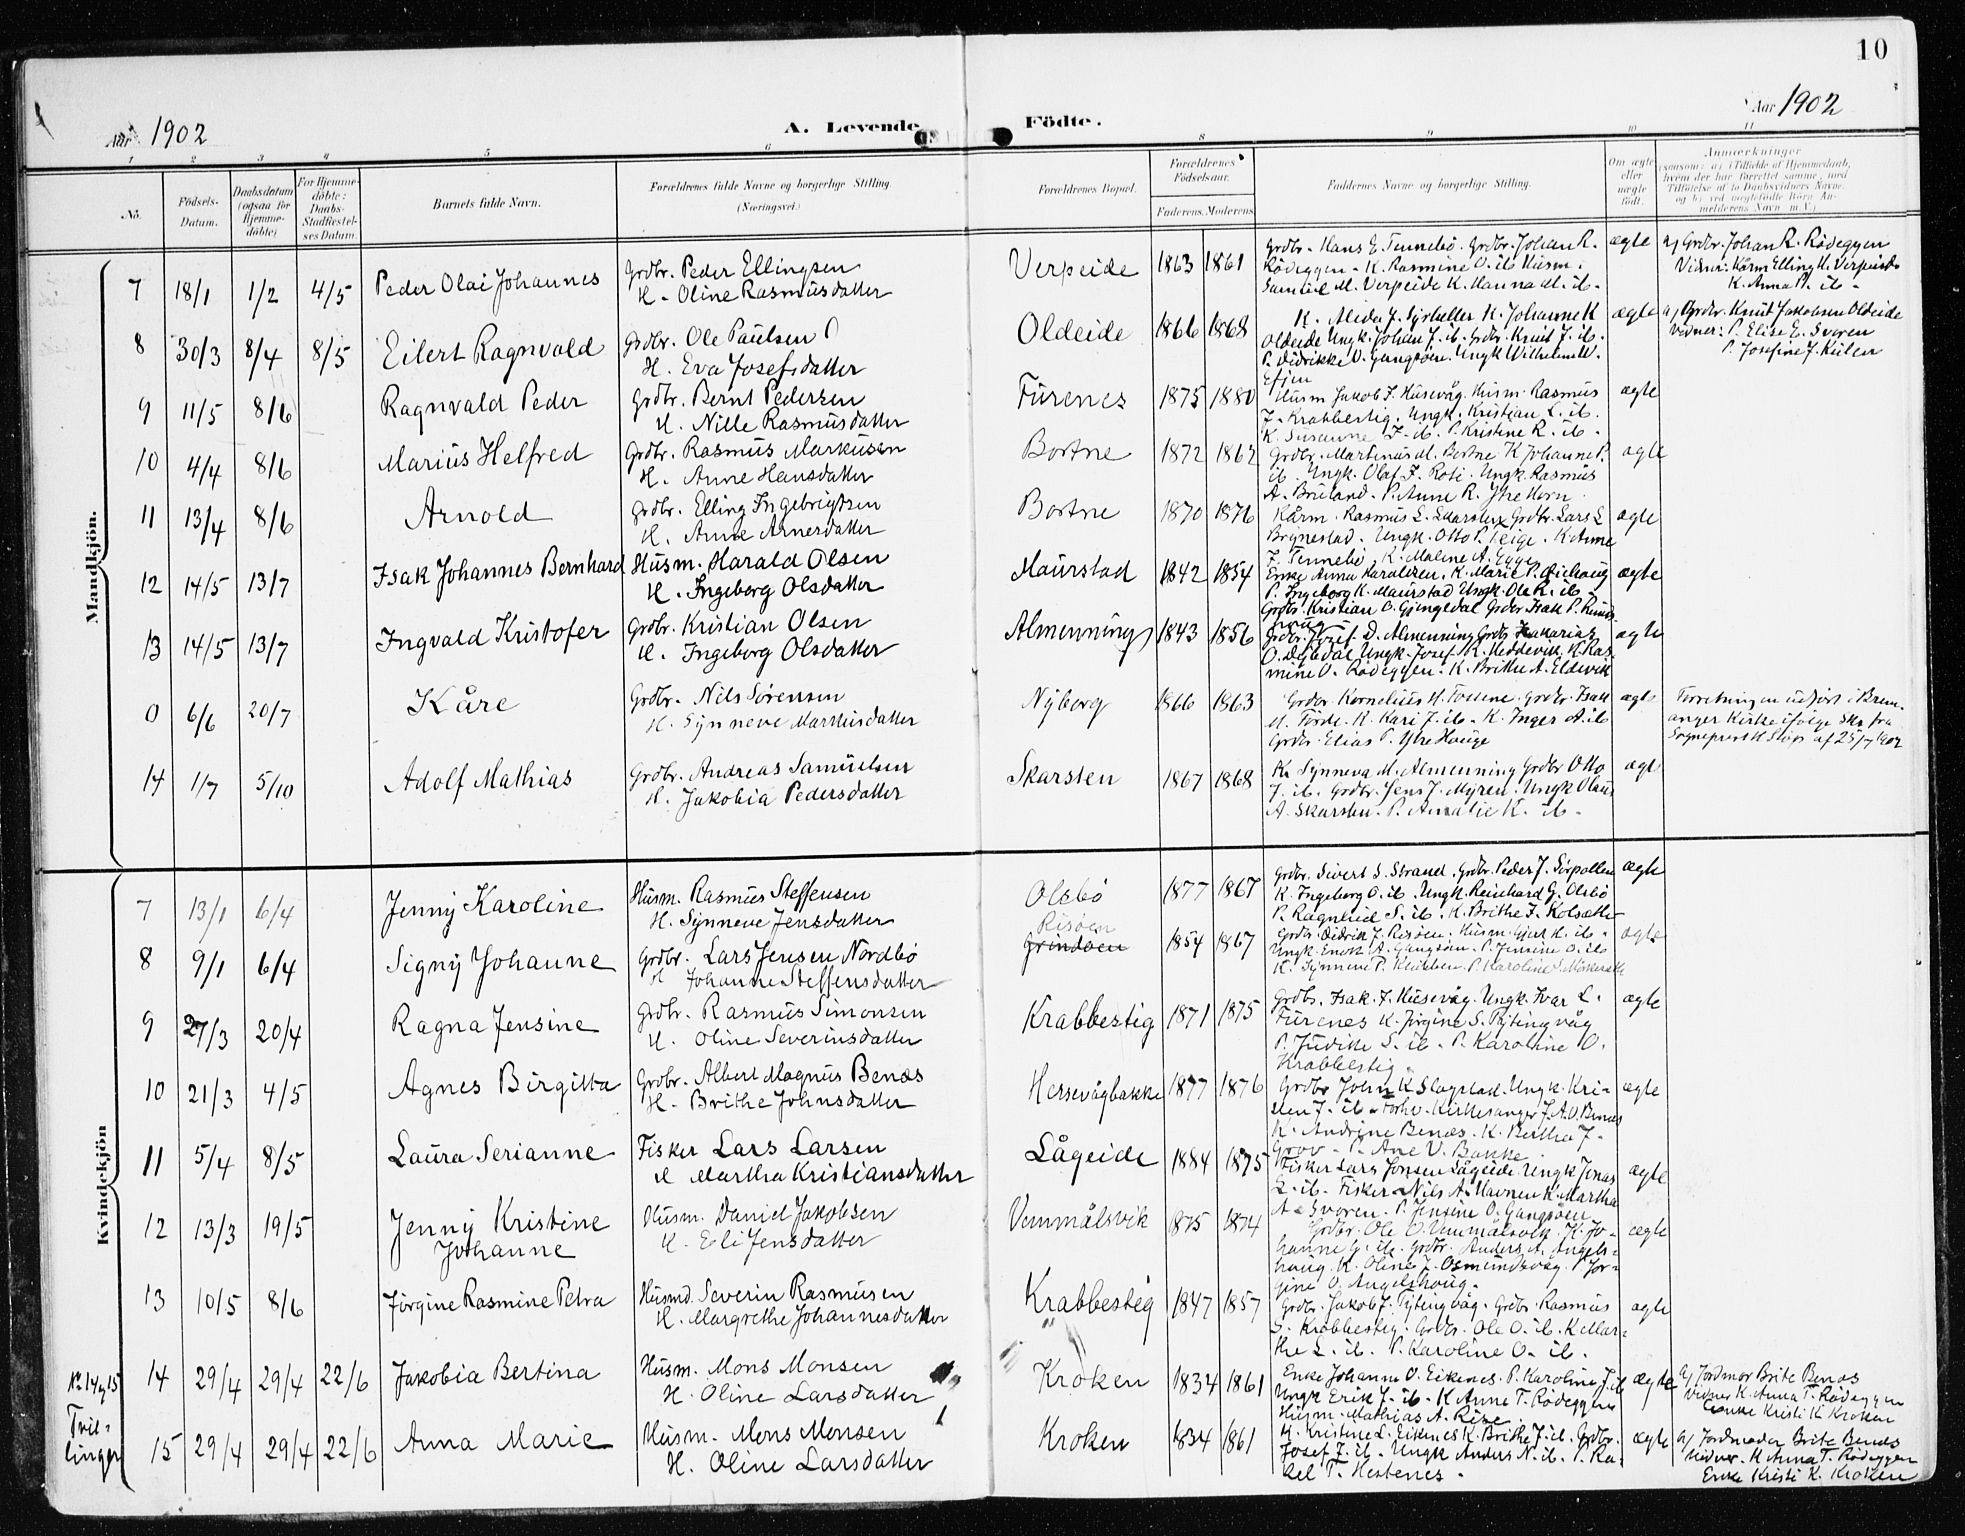 10
Aar 1902
A. Levende Födte.
Aar 1902
1 2 3 4 5 6 8 9 10 11
No.
Födsels-Datum.
Daabsdatum (ogsaa for Hjemme-döbte)
For Hjemme-döbte: Daabs-Stadfæstel-ses Datum.
Barnets fulde Navn.
Forældrenes fulde Navne og borgerlige Stilling.
(Næringsvei.)
Forældrenes Bopæl.
Forældrenes Födselsaar.
Faderens. Moderens.
Faddernes Navne og borgerlige Stilling.
Om ægte eller uægte födt.
Anmærkninger
Mandkjön.
7 18/1 1/2 4/5 Peder Olai Johannes Grdbr. Peder Ellingsen Verpeide 1863 1861 Grdbr. Hans E. Tennebö. Grdbr. Johan R. ægte a) Grdbr. Johan R. Rödeggen
H. Oline Rasmusdatter Rödeggen. K. Rasmine O. ib. Husm. Vidner: Kårm Elling K. Verpeide
Samuel M. Verpeide K. Hanna M. ib. K. Anna P. ib.
8 30/3 8/4 8/5 Eilert Ragnvald Grdbr. Ole Paulsen Oldeide 1866 1868 K. Alida J. K. Johanne K ægte a) Grdbr. Knut Jakobsen Oldeide
H. Eva Josefsdatter Oldeide Ungk. Johan J. ib. Grdbr. Knut J. ib. Vidner: P. Elise E. Svoren
P. Didrikke O. Gangsöen. Ungk Wilhelm W. P. Josefine J. Kulen
9 11/5 8/6 Ragnvald Peder Grdbr. Bernt Pedersen Furenes 1875 1880 Husm Jakob J. Husevåg. Husm. Rasmus ægte
H. Nille Rasmusdatter J. Krabbestig. Ungk. Kristian L. ib.
K. Susanne J. ib. P. Kristine R. ib.
10 4/4 8/6 Marius Helfred Grdbr. Rasmus Markusen Bortne 1872 1862 Grdbr. Martinus M. Bortne K Johanne P. ægte
H. Anne Hansdatter ib. Ungk. Olaf J. Roti. Ungk Rasmus
A. Briland. P. Anne R. Ytre Horn.
11 13/4 8/6 Arnold Grdbr. Elling Ingebrigtsen Bortne 1870 1876 Kårm. Rasmus L. Skarsten Grdbr. Lars L ægte
H. Anne Arnesdatter Brynestad. Ungk. Otto P. Leige. K Anne
J. Tennebö. K. Maline A. Egge
12 14/5 13/7 Isak Johannes Bernhard Husm. Harald Olsen Maurstad 1842 1854 Enke Anna Haraldsen. K. Marie P. ægte
H. Ingeborg Olsdatter P. Ingeborg K. Maurstad Ungk. Ole R. ib.
Grdbr. Kristian O. Gjengedal Grdbr Isak P.
13 14/5 13/7 Ingvald Kristofer Grdbr. Kristian Olsen Almenning 1843 1856 Grdbr. Josef D. Almenning Grdb. Zakarias ægte
H. Ingeborg Olsdatter O. Ungk. Josef K. Heddevik. K Ras-
mine O. Rödeggen. K. Brithe A. Eldevik
0 6/6 20/7 Kåre Grdbr. Nils Sörensen Nyborg 1866 1863 Grdbr Kornelius H. Grdbr. Isak ægte Forretningen udfört i Brem-
H. Synneve Marthisdatter M. Förde. K. Kari J. ib. K. Inger A. ib anger Kirke ifölge Skr fra
Grdbr. Elias P. Ytre Hauge Sogneprest af 25/7 1902
14 1/7 5/10 Adolf Mathias Grdbr. Andreas Samuelsen Skarsten 1867 1868 K. Synneva M. Almenning Grdbr Otto ægte
H. Jakobia Pedersdatter J. ib. Grdbr. Jens J. Myren. Ungk Olaus
A. Skarsten. P. Amalie K. ib.
Kvindekjön
7 13/1 6/4 Jenny Karoline Husm. Rasmus Steffensen Olsbö 1877 1867 Grdbr. Sivert S. Strand. Grdbr. Peder J. Sörpollen ægte
H. Synneve Jensdatter K. Ingeborg O. ib. Ungk. Reinhard G. Olsbö
P. Ragnhild S. ib. K. Brithe J. Kolsæter
8 9/1 6/4 Signy Johanne Grdbr. Lars Jensen Nordbö Risöen Grindöen 1854 1867 Grdbr. Didrik J. Risöen. Husm. Gjert K. ib. ægte
H Johanne Steffensdatter Ungk Enok A. Gangsöen. P. Jensine O. ib
K. Synneve P. Klubben. P. Karoline S.
9 27/3 20/4 Ragna Jensine Grdbr. Rasmus Simonsen Krabbestig 1871 1875 Grdbr. Isak J. Husevåg. Ungk. Ivar L. ægte
H. Oline Severinsdatter Furenes K. Jörgine S. Rytingvåg
P. Judikke S. ib. P. Karoline O.
Krabbestig
10 21/3 4/5 Agnes Birgitta Grdbr. Albert Magnus Benæs Hessevågbakke 1877 1876 Grdbr John K Slagstad. Ungk. Kri- ægte
H. Brithe Johnsdatter sten J. ib. Forhv. Kirkesanger J. A. O. Benæs
K. Andrine Benæs. K. Bertha J.
Grov. P. Ane V. Bakke.
11 5/4 8/5 Laura Serianne Fisker Lars Larsen Lågeide 1884 1875 Fisker Lars Jonsen Lågeide. Ungk Jonas ægte
H Martha Kristiansdatter L. ib. Fisker Nils A. Havnen K. Martha
A. Svoren. P. Jensine O. Gangsöen
12 13/3 19/5 Jenny Kristine Johanne Husm. Daniel Jakobsen Vemmålsvik 1875 1874 Grdbr. Ole O. Vemmålsvik. K. Jo- ægte
H. Eli Jensdatter hanne G. ib. Grdbr. Anders A. Angels-
haug. K. Oline J. Osmundsvåg. P Jör-
gine O. Angelshaug.
13 10/5 8/6 Jörgine Rasmine Petra Husmd. Severin Rasmusen Krabbestig 1847 1857 Grdbr. Jakob J. Rytingvåg. Grdbr. Rasmus ægte
H. Margrethe Johannesdatter S. Krabbestig. Grdbr. Ole O. ib. K. Mar-
the L. ib. P. Karoline O. ib.
No 14 og 15 Trillinger
14 29/4 29/4 22/6 Jakobia Bertina Husm. Mons Monsen Kroken 1834 1861 Enke Johanne O. Eikenes. P. Karoline J. ib ægte a) Jordmor Brite Benæs
H. Oline Larsdatter Ungk Erik J. ib. K Anne T. Rödeggen Vidner K. Anna T. Rödeggen
Husm. Mathias A. Rise. Enke Kristi K. Kroken
15 29/4 29/4 22/6 Anna Marie Husm. Mons Monsen Kroken 1834 1861 K. Kristine L. Eikenes K. Brithe J. ib. Grdbr. ægte a) Jordmoder Brite Benæs
H. Oline Larsdatter Josef J. ib. Ungk Anders N. ib. P. Ra- Vidner. K Anna T. Rödeggen
kel T. Hestenes. Enke Kristi K. Kroken